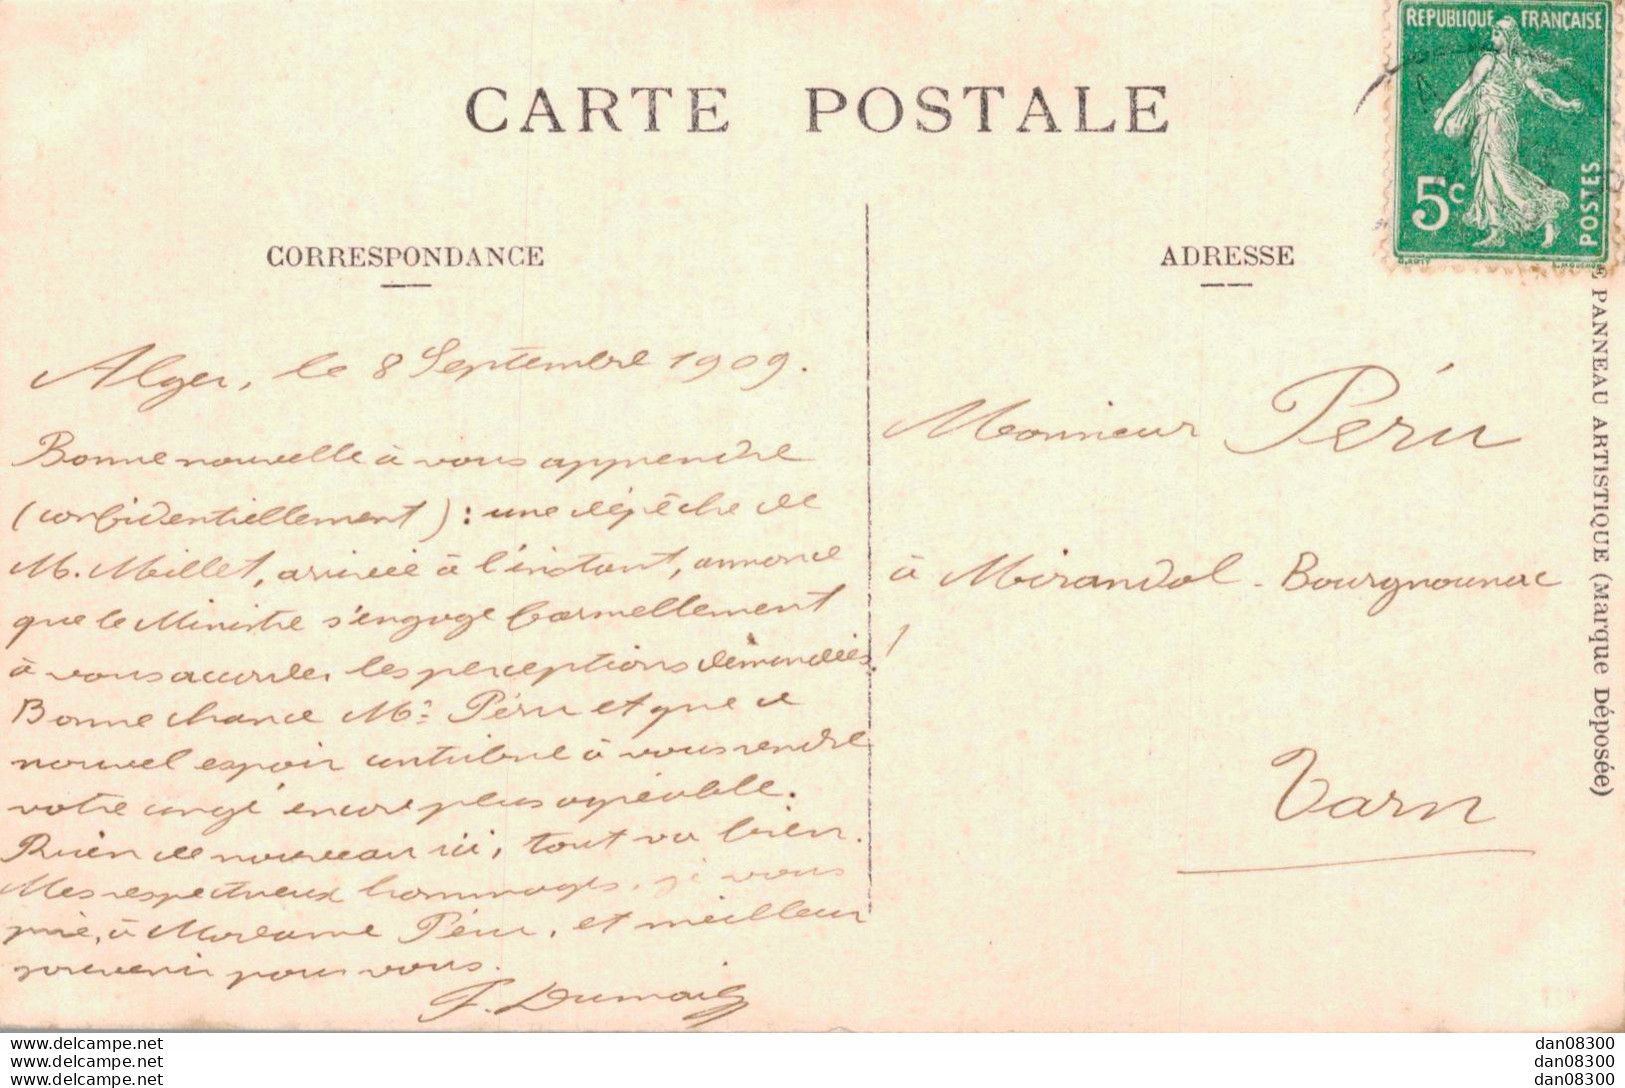 CARTE POSTALE
REPUBLIQUE FRANÇAISE
5c
POSTES
CORRESPONDANCE
ADRESSE
Alger, le 8 Septembre 1909.
Bonne nouvelle à vous apprendre
(confidentiellement) : une dépêche de
M. Millet, arrivée à l'instant, annonce
que le Ministre s'engage formellement
à vous accorder les perceptions demandées !
Bonne chance Mr Péru et que ce
nouvel espoir contribue à vous rendre
votre congé encore plus agréable.
Rien de nouveau ici, tout va bien.
Mes respectueux hommages, je vous
prie, à Madame Péru, et meilleur
souvenir pour vous.
F. Dumaig
Monsieur Péru
à Mirandol-Bourgnounac
Tarn
PANNEAU ARTISTIQUE (Marque Déposée)
www.delcampe.net
www.delcampe.net
www.delcampe.net
dan08300
dan08300
dan08300